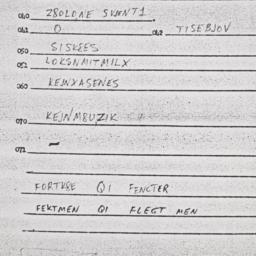 040 ZBOLONE SKMNT1
041 O 042 TISEBJOV
050 SISKEES
051 LOKSNMITMILX
060 KEJNXASENES
070 KEJNMBUZIK
071 -
FORTKSE QI FENCTER
FEKTMEN QI FLEGT MEN